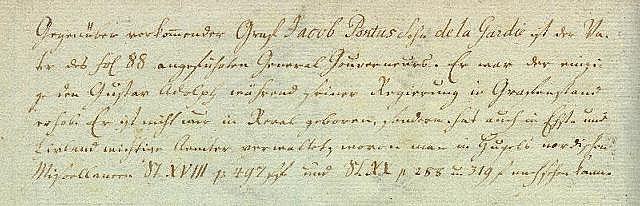 Gegenüber vorkommender Graf Jacob Pontus Sohn de la Gardie ist der Va-
ter des fol 88 angeführten General Gouverneurs. Er war der einzi-
ge den Gustav Adolph während seiner Regierung in Grafenstand
erhob. Er ist nicht nur in Reval geboren, sondern hat auch in Ehst- und
Livland wichtige Aemter verwaltet, wovon man in Hupels nordischen
Miscellaneen St. XVIII p. 497 und St. XX p 288 u. 319 f nachsehen kann.